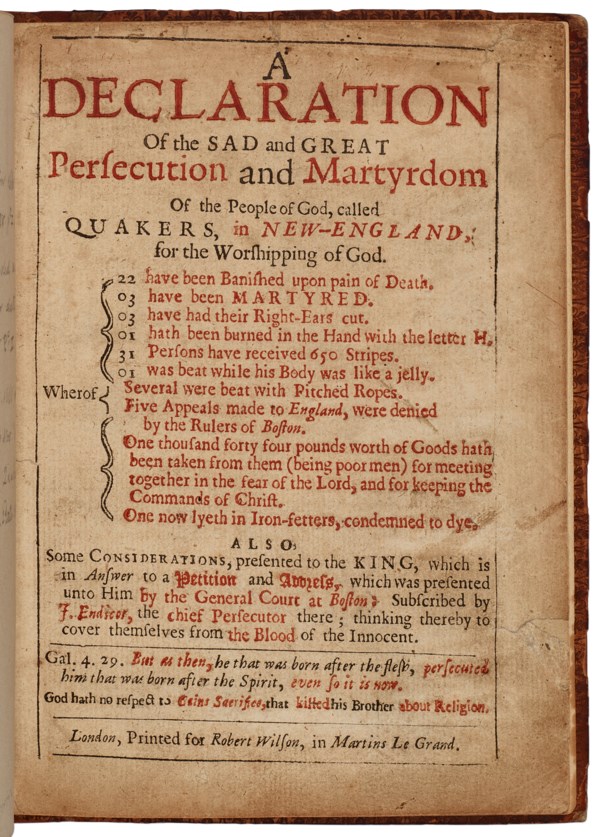 A
DECLARATION
Of the SAD and GREAT
Perſecution and Martyrdom
Of the People of God, called
QUAKERS, in NEW-ENGLAND,
for the Worſhipping of God.
22 have been Baniſhed upon pain of Death.
03 have been MARTYRED.
03 have had their Right-Ears cut.
01 hath been burned in the Hand with the letter H.
31 Perſons have received 650 Stripes.
01 was beat while his Body was like a jelly.
Several were beat with Pitched Ropes.
Wherof
Five Appeals made to England, were denied
by the Rulers of Boſton.
One thouſand forty four pounds worth of Goods hath
been taken from them (being poor men) for meeting
together in the fear of the Lord, and for keeping the
Commands of Chriſt.
One now lyeth in Iron-fetters, condemned to dye.
ALSO,
Some CONSIDERATIONS, preſented to the KING, which is
in Anſwer to a Petition and Addreſs, which was preſented
unto Him by the General Court at Boſton: Subſcribed by
J. Endicot, the chief Perſecutor there; thinking thereby to
cover themſelves from the Blood of the Innocent.
Gal. 4. 29. But as then, he that was born after the fleſh, perſecuted
him that was born after the Spirit, even ſo it is now.
God hath no reſpect to Cains Sacrifice, that killed his Brother about Religion.
London, Printed for Robert Wilſon, in Martins Le Grand.